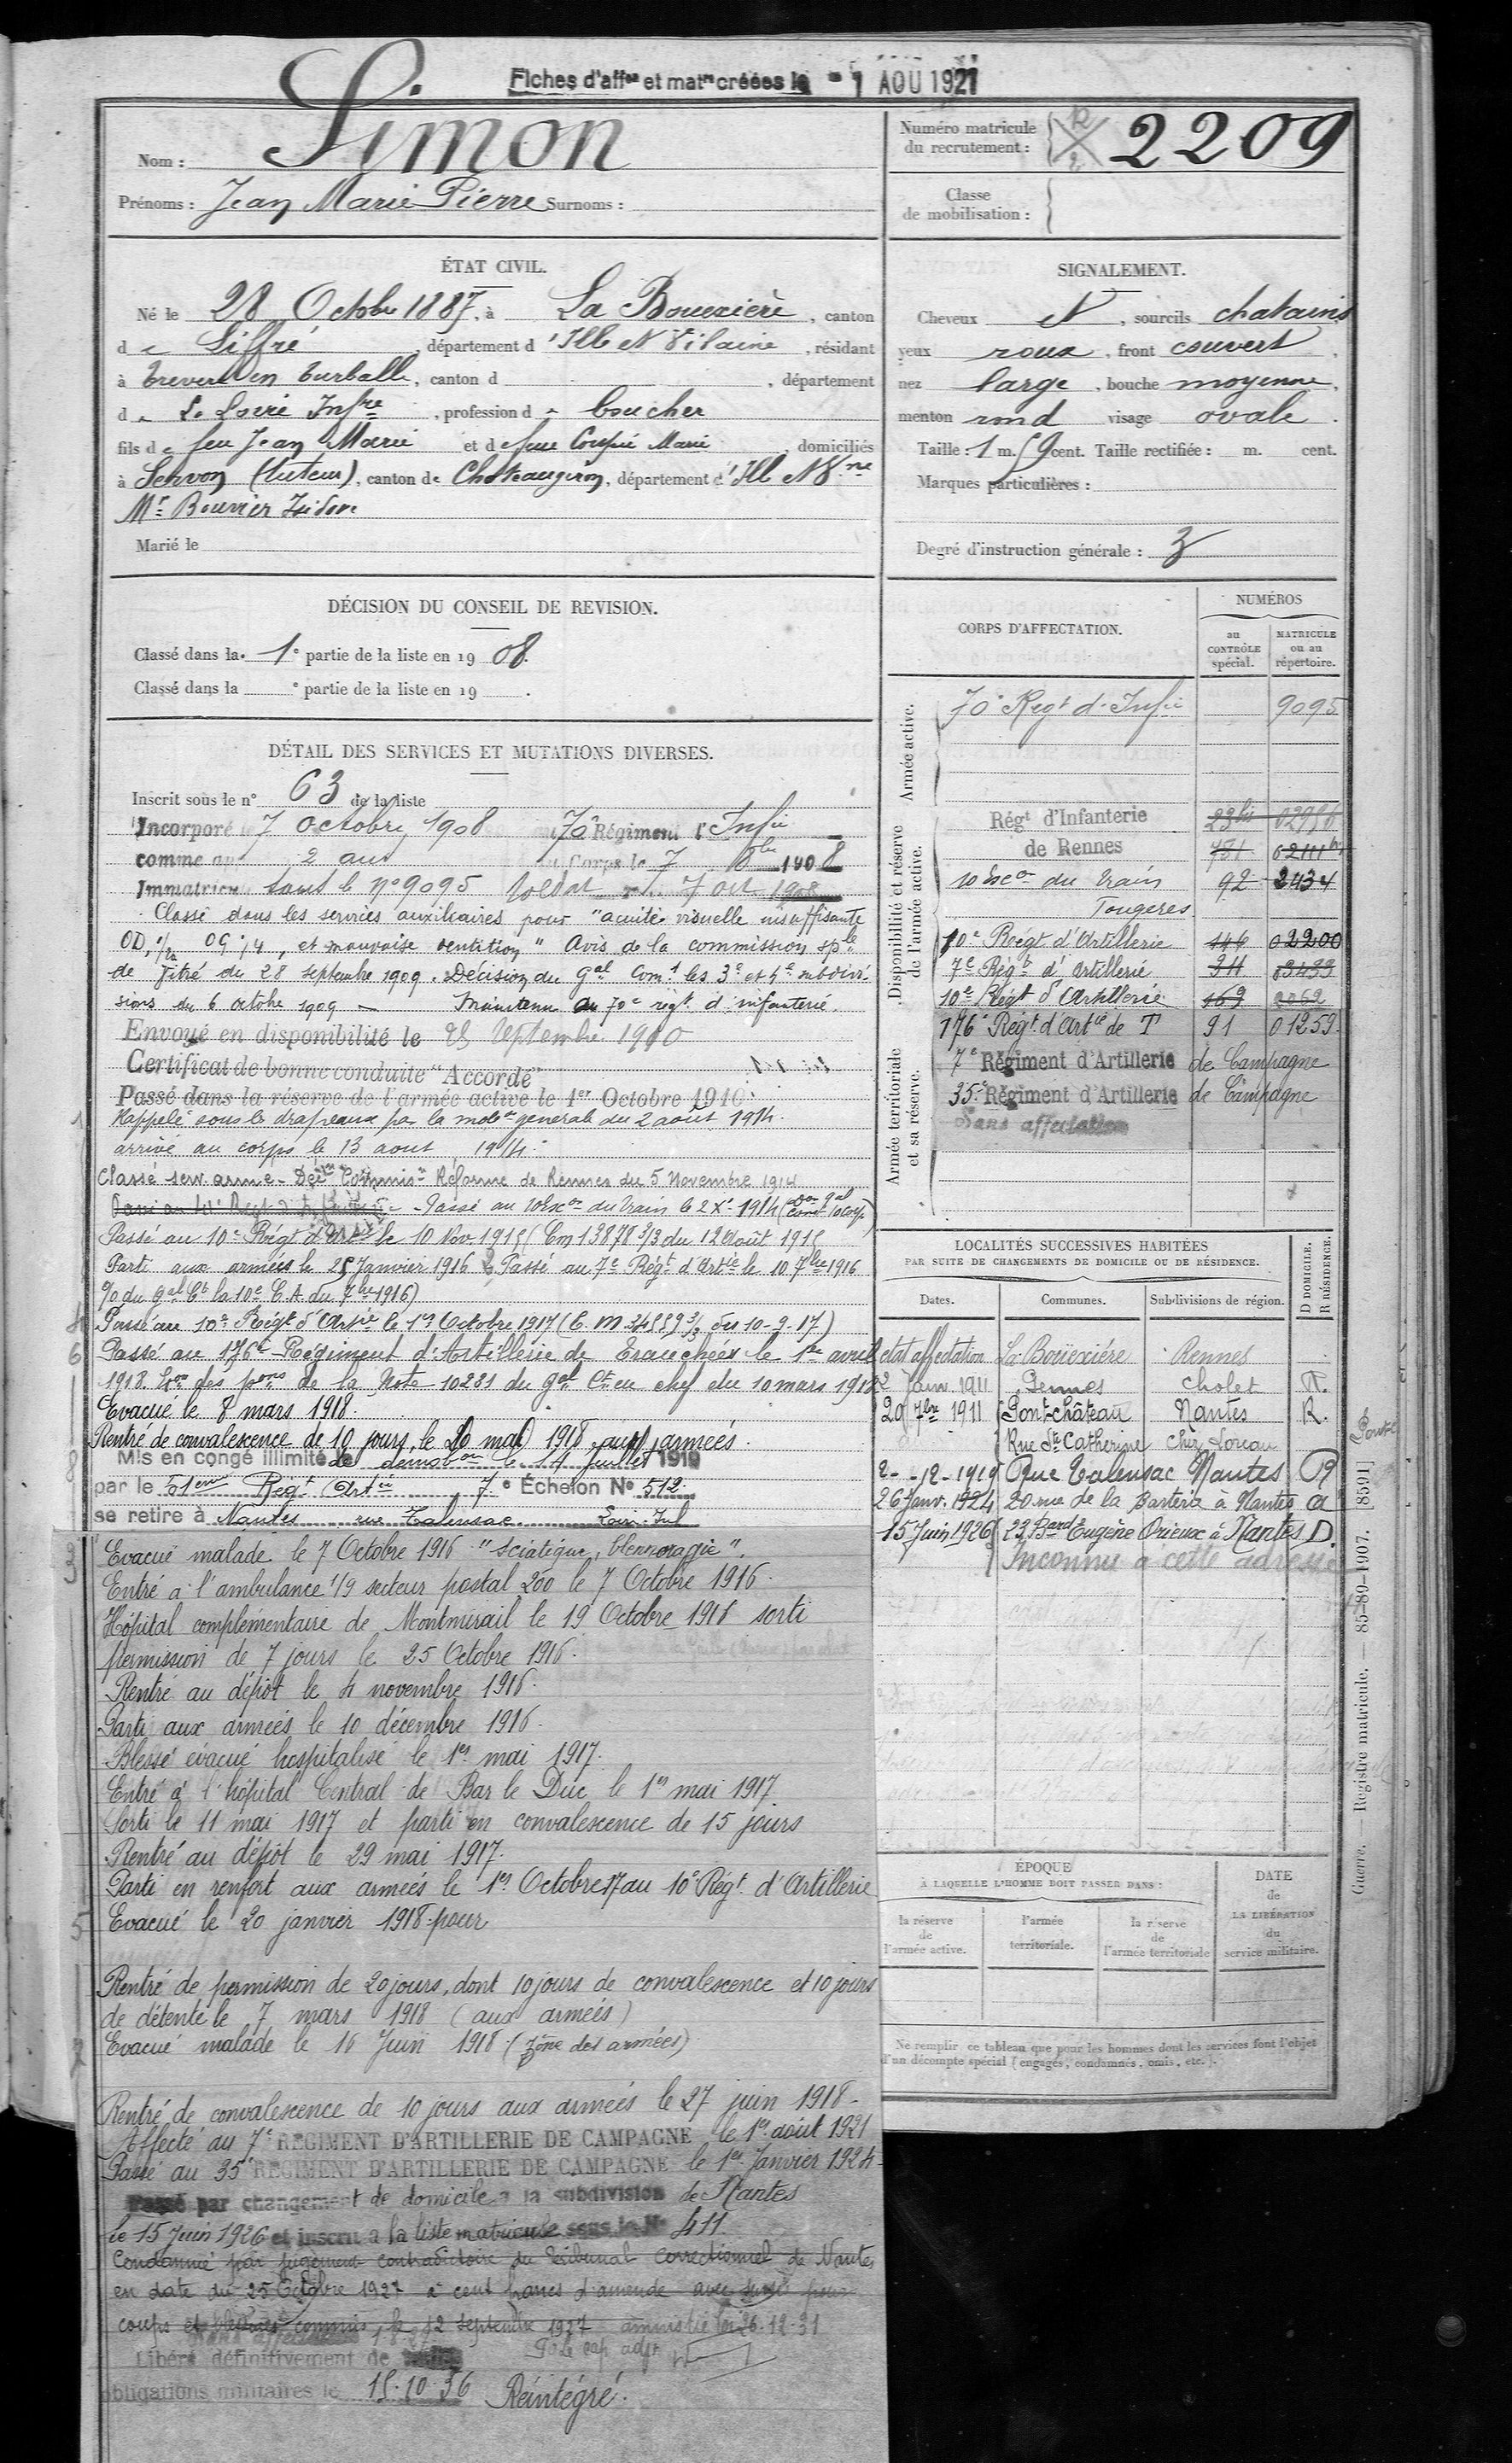 Fiches d'aff^on et mat^re créées le - 1 AOU 1921
Nom : Simon
Prénoms : Jean Marie Pierre Surnoms :
Numéro matricule du recrutement : 2209
Classe de mobilisation :
ÉTAT CIVIL.
Né le 28 Octobre 1887, à La Bouexière, canton
de Liffré, département d'Ille et Vilaine, résidant
à en Turballe, canton d , département
de La Loire Inf^re, profession de boucher
fils de feu Jean Marie et de feue Marie domiciliés
à Servon (tuteur), canton de Chateaugiron, département d'Ill et V^ne
M^r Bouvier Isidore
Marié le
SIGNALEMENT.
Cheveux et, sourcils chatains
yeux roux, front couvert,
nez large, bouche moyenne,
menton rond visage ovale.
Taille : 1 m. 59 cent. Taille rectifiée : m. cent.
Marques particulières :
Degré d'instruction générale : 3
DÉCISION DU CONSEIL DE REVISION.
Classé dans la 1e partie de la liste en 1908.
Classé dans la e partie de la liste en 19 .
DÉTAIL DES SERVICES ET MUTATIONS DIVERSES.
Inscrit sous le n° 63 de la liste
Incorporé le 7 octobre 1908 au 70e Régiment d'Inf^ie
comme 2 ans au Corps le 7 8bre 1908
Immatriculé sous le n° 9095 Soldat 7 oct 1908
Classé dans les services auxiliaires pour "acuité visuelle insuffisante
OD, OG 1/4, et mauvaise dentition" Avis de la commission sp^le
de Vitré du 28 septembre 1909. Décision du G^al Com^t les 3e et 4e subdivi-
sions du 6 octobre 1909 — Maintenu au 70e rég^t d'infanterie.
Envoyé en disponibilité le 25 Septembre 1910
Certificat de bonne conduite "Accordé"
Passé dans la réserve de l'armée active le 1er Octobre 1910.
Rappelé sous les drapeaux par la mob^on générale du 2 août 1914.
arrivé au corps le 13 aout 1914.
Classé serv. armé - Déc^on Commis^on Réforme de Rennes du 5 Novembre 1914
Passé au - Passé au 10e Esc^on du train le 2 X^e 1914
Passé au 10e Régt d'Art^ie le 10 Nov 1915 (Cm 13878 3/3 du 12 Août 1915
Parti aux armées le 25 Janvier 1916 Passé au 7e Rég^t d'Art^ie le 10 7bre 1916
% du g^al C^t la 10e C.A du 7bre 1916)
Passé au 10e Régt d'Art^ie le 1er Octobre 1917 (C.M 34559 3/3 du 10-9-17)
Passé au 176e Régiment d'Artillerie de Tranchées le 1er avril
1918. des p^ons de la Note 10231 du g^al C^t en chef du 10 mars 1918
Evacué le 8 mars 1918.
Rentré de convalescence de 10 jours, le 20 mai 1918 aux armées.
Mis en congé illimité de démob^on le 14 juillet 1919
par le 51eme Rég^t Art^ie 7e Échelon N° 512
se retire à Nantes rue Talensac Loire Inf
Evacué malade le 7 Octobre 1916 "sciatique, blennoragie".
Entré à l'ambulance 1/9 secteur postal 200 le 7 Octobre 1916.
Hôpital complémentaire de Montmirail le 19 Octobre 1916 sorti
permission de 7 jours le 25 Octobre 1916.
Rentré au dépôt le 4 novembre 1916.
Parti aux armées le 10 décembre 1916.
Blessé évacué hospitalisé le 1er mai 1917.
Entré à l'hôpital Central de Bar le Duc le 1er mai 1917
Sorti le 11 mai 1917 et parti en convalescence de 15 jours
Rentré au dépôt le 29 mai 1917.
Parti en renfort aux armées le 1er Octobre 17 au 10e Rég^t d'Artillerie
Evacué le 20 janvier 1918 pour
Rentré de permission de 20 jours, dont 10 jours de convalescence et 10 jours
de détente le 7 mars 1918 (aux armées)
Evacué malade le 16 Juin 1918 (zône des armées)
Rentré de convalescence de 10 jours aux armées le 27 juin 1918 -
Affecté au 7e RÉGIMENT D'ARTILLERIE DE CAMPAGNE le 1er août 1921
Passé au 35e RÉGIMENT D'ARTILLERIE DE CAMPAGNE le 1er Janvier 1924
Passé par changement de domicile à la subdivision de Nantes
le 15 Juin 1926 et inscrit à la liste matricule sous le N° 411
Condamné par jugement contradictoire du Tribunal Correctionnel de Nantes
en date du 25 Octobre 1927 à cent francs d'amende avec sursis pour
coups et blessures commis, le 12 septembre 1927 amnistié loi 26.12.31
Libéré définitivement de
obligations militaires le 15.10.36 Réintégré.
CORPS D'AFFECTATION.
NUMÉROS
au CONTRÔLE spécial.
MATRICULE ou au répertoire.
Armée active.
70e Regt d'Inf^ie 9095
Disponibilité et réserve de l'armée active.
Rég^t d'Infanterie 23bis
de Rennes 751
10e Esc^on du train 92 2434
Fougères
10e Régt d'Artillerie 146 02200
7e Rég^t d'Artillerie 34 03433
10e Régt d'Artillerie 169 2062
Armée territoriale et sa réserve.
176e Rég^t d'Art^ie de T 91 01259
7e Régiment d'Artillerie de Campagne
35e Régiment d'Artillerie de Campagne
Sans affectation
LOCALITÉS SUCCESSIVES HABITÉES
PAR SUITE DE CHANGEMENTS DE DOMICILE OU DE RÉSIDENCE.
Dates. Communes. Subdivisions de région. D DOMICILE. R RÉSIDENCE.
état affectation La Bouëxière Rennes
2 Janv. 1911 Gennes Cholet R.
20 7bre 1911 Pont-château Nantes R.
Rue Ste Catherine chez Loreau
2 - 12 - 1919 Rue Talensac Nantes R
26 Janv. 1924 20 rue de la à Nantes
15 Juin 1926 23 B^ard Eugène Orieux à Nantes D.
Inconnu à cette adresse
ÉPOQUE
À LAQUELLE L'HOMME DOIT PASSER DANS :
la réserve de l'armée active.
l'armée territoriale.
la réserve de l'armée territoriale
DATE de LA LIBÉRATION du service militaire.
Ne remplir ce tableau que pour les hommes dont les services font l'objet
d'un décompte spécial (engagés, condamnés, omis, etc.).
Guerre. — Registre matricule. — 85-89-1907. [8591]